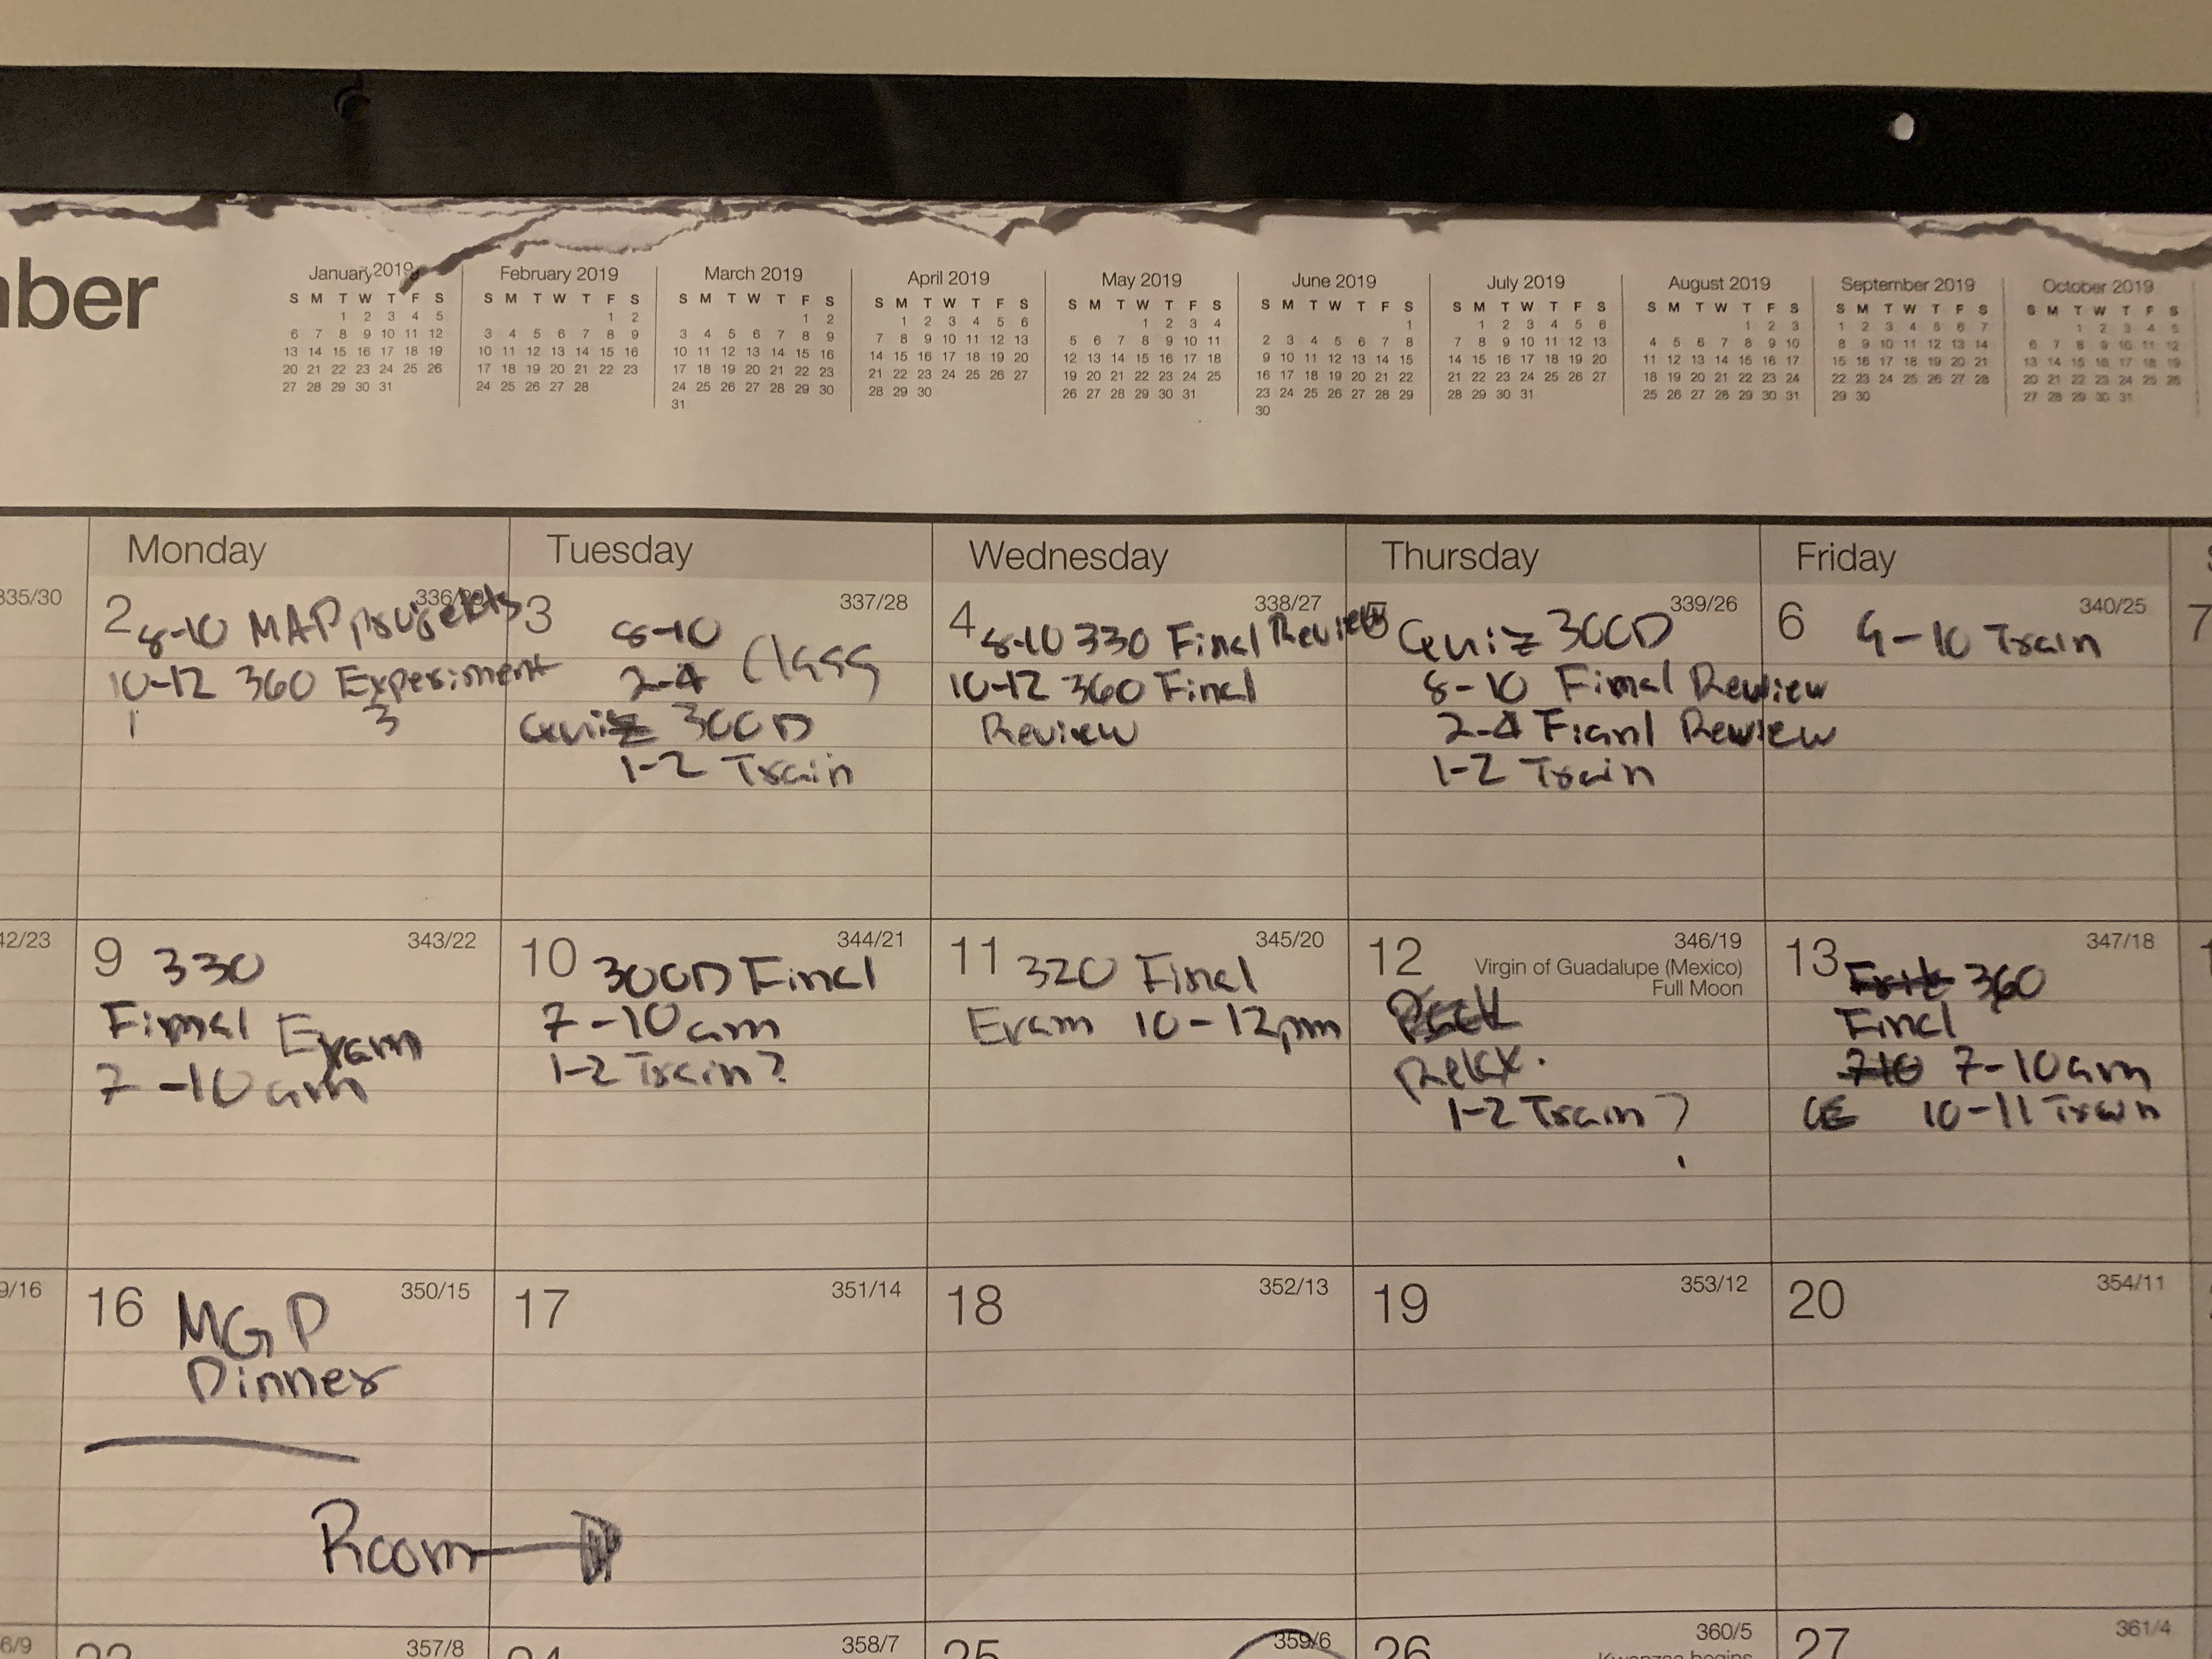 mber
January 2019
S M T W T F S
1 2 3 4 5
6 7 8 9 10 11 12
13 14 15 16 17 18 19
20 21 22 23 24 25 26
27 28 29 30 31
February 2019
S M T W T F S
1 2
3 4 5 6 7 8 9
10 11 12 13 14 15 16
17 18 19 20 21 22 23
24 25 26 27 28
March 2019
S M T W T F S
1 2
3 4 5 6 7 8 9
10 11 12 13 14 15 16
17 18 19 20 21 22 23
24 25 26 27 28 29 30
31
April 2019
S M T W T F S
1 2 3 4 5 6
7 8 9 10 11 12 13
14 15 16 17 18 19 20
21 22 23 24 25 26 27
28 29 30
May 2019
S M T W T F S
1 2 3 4
5 6 7 8 9 10 11
12 13 14 15 16 17 18
19 20 21 22 23 24 25
26 27 28 29 30 31
June 2019
S M T W T F S
1
2 3 4 5 6 7 8
9 10 11 12 13 14 15
16 17 18 19 20 21 22
23 24 25 26 27 28 29
30
July 2019
S M T W T F S
1 2 3 4 5 6
7 8 9 10 11 12 13
14 15 16 17 18 19 20
21 22 23 24 25 26 27
28 29 30 31
August 2019
S M T W T F S
1 2 3
4 5 6 7 8 9 10
11 12 13 14 15 16 17
18 19 20 21 22 23 24
25 26 27 28 29 30 31
September 2019
S M T W T F S
1 2 3 4 5 6 7
8 9 10 11 12 13 14
15 16 17 18 19 20 21
22 23 24 25 26 27 28
29 30
October 2019
S M T W T F S
1 2 3 4 5
6 7 8 9 10 11 12
13 14 15 16 17 18 19
20 21 22 23 24 25 26
27 28 29 30 31
Monday Tuesday Wednesday Thursday Friday S
335/30
2 336/29
8-10 MAP projekts
10-12 360 Experiment
3
3 337/28
8-10
2-4 Class
Quiz 300D
1-2 Train
4 338/27
8-10 330 Final Review
10-12 360 Final
Review
5 339/26
Quiz 300D
8-10 Final Review
2-4 Fianl Review
1-2 Train
6 340/25
9-10 Train
7
42/23
9 343/22
330
Final Exam
7-10 am
10 344/21
300D Final
7-10am
1-2 Train?
11 345/20
320 Final
Exam 10-12pm
12 346/19
Virgin of Guadalupe (Mexico)
Full Moon
Relax.
1-2 Train?
13 347/18
360
Final
7-10am
10-11 Train
9/16
16 350/15
MGP
Dinner
Room
17 351/14
18 352/13
19 353/12
20 354/11
6/9
23 357/8
24 358/7
25 359/6
26 360/5
Kwanzaa begins
27 361/4